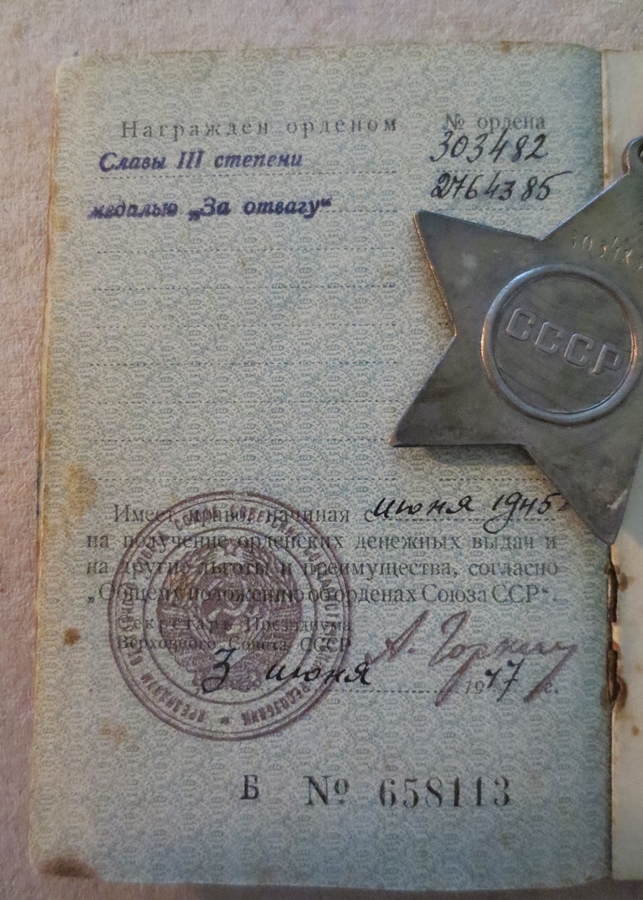 Награжден орденом № ордена
Славы III степени 303482
медалью „За отвагу“ 2764385
СССР
Имеет право, начиная с июня 1945 г.
на получение орденских денежных выдач и
на другие льготы и преимущества, согласно
„Общему положению об орденах Союза ССР“.
Секретарь Президиума
Верховного Совета СССР
А. Горкин
3 июня 1947 г.
Б № 658113